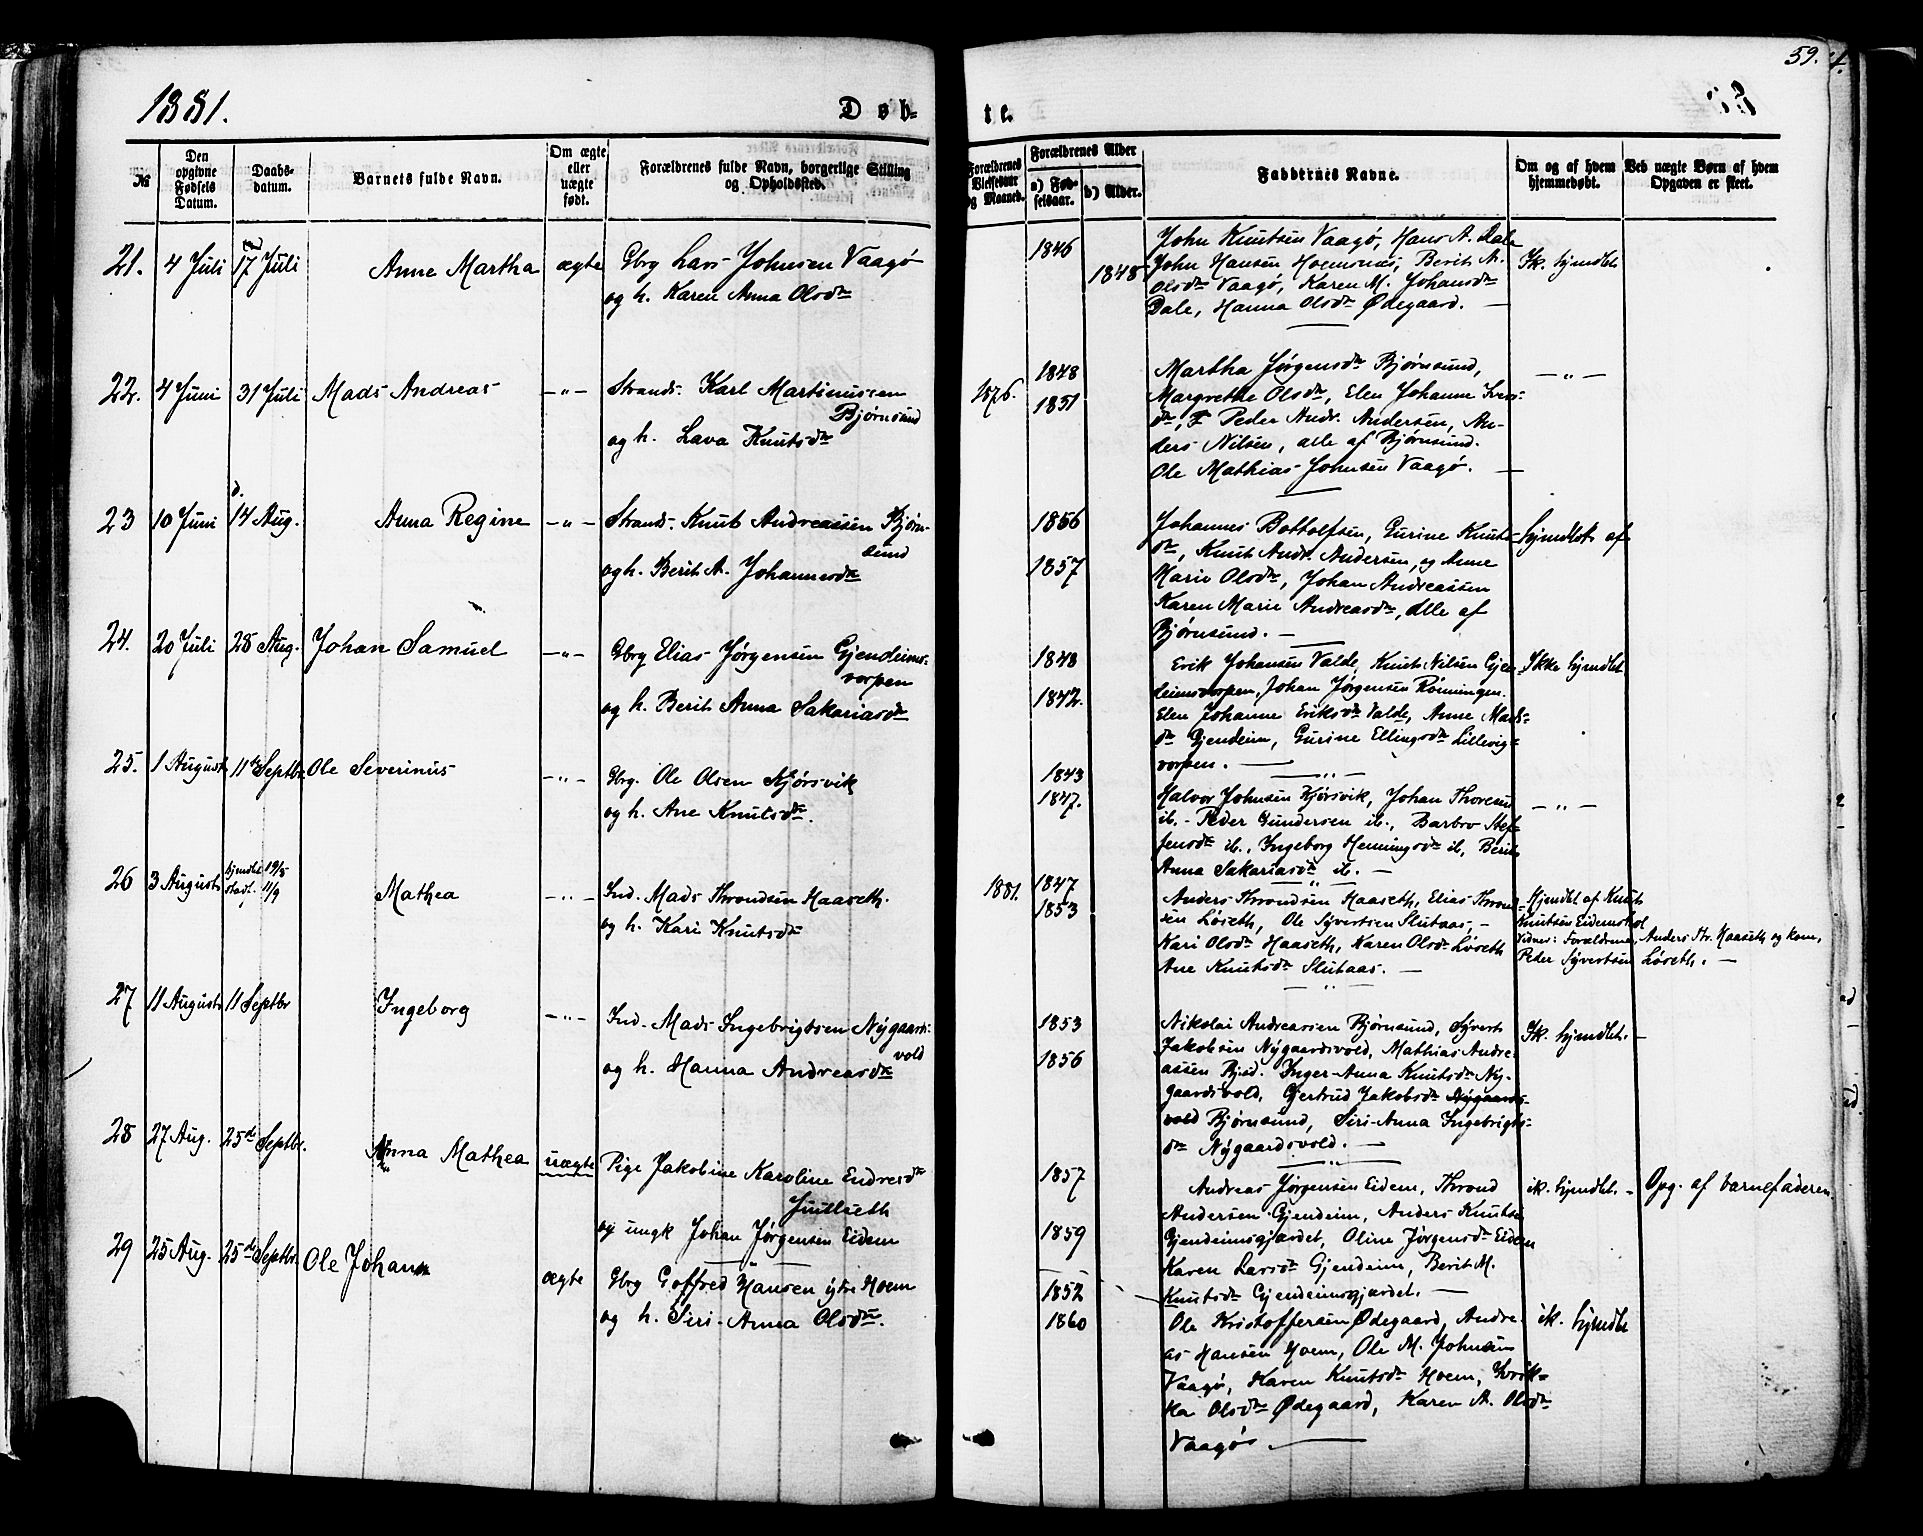 1881.
Døb-
te.
59.
№
Den opgivne Fødsels Datum.
Daabs-datum.
Barnets fulde Navn.
Om ægte eller uægte født.
Forældrenes fulde Navn, borgerlige Stilling og Opholdssted.
Forældrenes Vielsesaar og Maaned.
Forældrenes Alder
a) Fødselsaar.
b) Alder.
Faddernes Navne.
Om og af hvem hjemmedøbt.
Ved uægte Børn af hvem Opgaven er skeet.
21. 4 Juli 17 Juli Anne Martha ægte Gbrg Lars Johnsen Vaagø
og h. Karen Anna Olsdtr
1846
1848
John Knutsen Vaagø, Hans A. Dale
John Hansen Hoemsnes, Berit A.
Olsdtr Vaagø, Karen M. Johansdtr
Dale, Hanna Olsdtr Ødegaard. —
Ik. hjmdbt
22. 4 Juni 31 Juli Mads Andreas —"— Strands. Karl Martinussen
Bjørnsund
og h. Lava Knutsdtr
1876.
1848
1851
Martha Jørgensdtr Bjørnsund,
Margrethe Olsdtr, Elen Johanne Ivers-
dtr, Peder Andr. Andersen, An-
ders Nilsen, alle af Bjørnsund.
Ole Mathias Johnsen Vaagø. —
—"—
23 10 Juni 14 Aug. Anna Regine —"— Strands. Knut Andreassen Bjørn-
sund
og h. Berit A. Johannesdtr
1856
1857
Johannes Bottolfsen, Gurine Knuts-
dtr, Knut Andr. Andersen, og Anne
Marie Olsdtr, Johan Andreassen
Karen Marie Andreasdtr, alle af
Bjørnsund. —
hjmdbt af
24. 20 Juli 28 Aug. Johan Samuel —"— Gbrg Elias Jørgensen Gjendeims-
vorpen
og h. Berit Anna Sakariasdtr
1848
1842.
Erik Johansen Valde, Knut Nilsen Gjen-
deimsvorpen, Johan Jørgensen Rönningen.
Elen Johanne Eriksdtr Valde, Anne Mads-
dtr Gjendeim, Gurine Ellingsdtr Lillevig-
vorpen. —
Ikke hjmdbt
25. 1 August 11te Septbr. Ole Severinus —"— Gbrg. Ole Olsen Kjørsvik
og h. Ane Knutsdtr.
1843
1847.
Halvor Johnsen Kjørsvik, Johan Thoresen
ib. - Peder Gundersen ib., Barbro Stef-
fensdtr ib., Ingeborg Henningsdtr ib, Berit
Anna Sakariasdtr ib. —
—"—
26 3 August hjmdbt 19/8 stadf. 11/9 Mathea —"— Ind. Mads Throndsen Haaseth.
og h. Kari Knutsdtr
1881.
1847
1853
Anders Throndsen Haaseth, Elias Thrond-
sen Løseth, Ole Syvertsen Slutaas, -
Kari Olsdtr Haaseth, Karen Olsdtr Løseth
Ane Knutsdtr Slutaas. —
Hjemdbt af Knut
Knutsen Eidemshol
Vidner: Forældrene, Anders Thr. Haaseth og kone,
Peder Syvertsen Løseth. —
27 11 August 11 Septbr Ingeborg —"— Ind. Mads Ingebrigtsen Nygaards-
vold
og h. Hanna Andreasdtr
1853
1856
Nikolai Andreasien Bjørnsund, Syvert
Jakobsen Nygaardsvold, Mathias Andre-
assen Bjsd. Inger-Anna Knutsdtr Ny-
gaardsvold, Gjertrud Jakobsdtr Nygaards-
vold Bjørnsund, Siri-Anna Ingebrigts-
dtr Nygaardsvold. —
Ik. hjmdbt. —
28 27 Aug. 25de Septbr. Anna Mathea uægte Pige Jakobine Karoline Endresdtr
Julseth
og ungk Johan Jørgensen Eidem
1857
1859
Andreas Jørgensen Eidem, Thrond
Andersen Gjendeim, Anders Knutsen
Gjendeimsgjærdet, Oline Jørgensdtr Eidem
Karen Larsdtr Gjendeim, Berit M.
Knutsdtr Gjendeimsgjærdet. —
ik. hjmdbt. -
Opg. af barnefaderen.
29 25 Aug. 25de Septbr. Ole Johan ægte Gbrg Goffred Hansen ytre Hoem
og h. Siri-Anna Olsdtr.
1852
1860
Ole Kristoffersen Ødegaard, Andre-
as Hansen Hoem, Ole M. Johnsen
Vaagø, Karen Knutsdtr Hoem, Hvik-
ka Olsdtr Ødegaard, Karen A. Olsdtr
Vaagø —
ik. hjmdbt